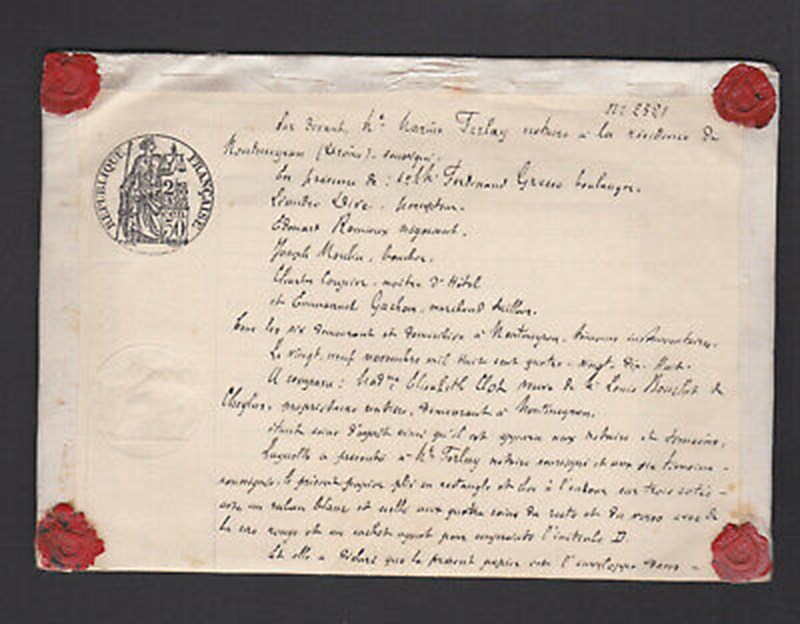 No 2521
Par devant Me Marius Terlay notaire à la résidence de
Montmeyran (Drôme), soussigné.
En présence de : Ferdinand boulanger.
Léandre percepteur.
Edouard négociant.
Joseph Moulin, boucher.
Charles maître d'Hôtel
et Emmanuel Gachon, marchand tailleur.
Tous les six demeurant et domiciliés à Montmeyran, témoins instrumentaires.
Le vingt neuf novembre mil huit cent quatre-vingt-dix-huit.
A comparu : Elisabeth Clot veuve de Louis de
propriétaire rentière, demeurant à Montmeyran.
étant saine d'esprit ainsi qu'il est apparu aux notaire et témoins,
Laquelle a présenté à Me Terlay notaire soussigné et aux six témoins
soussignés, le présent papier plié en rectangle et clos à l'entour sur trois côtés
avec un ruban blanc et scellé aux quatre coins du recto et du verso avec de
la cire rouge et un cachet ayant pour empreinte l'initiale D.
Et elle a déclaré que le présent papier sert l'enveloppe dans
RÉPUBLIQUE FRANÇAISE